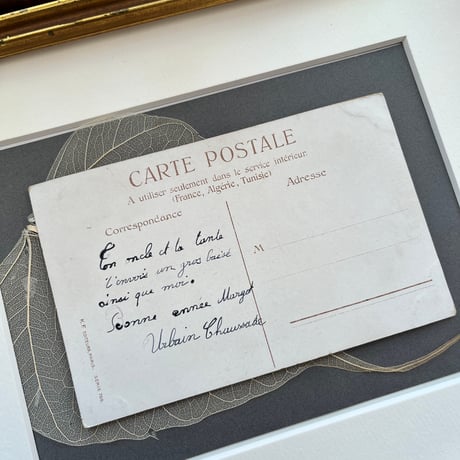 CARTE POSTALE
A utiliser seulement dans le service intérieur.
(France, Algérie, Tunisie)
Correspondance
Adresse
Ton oncle et ta tante
t'envoie un gros baisé
ainsi que moi.
Bonne année Margot
Urbain Chaussade
M